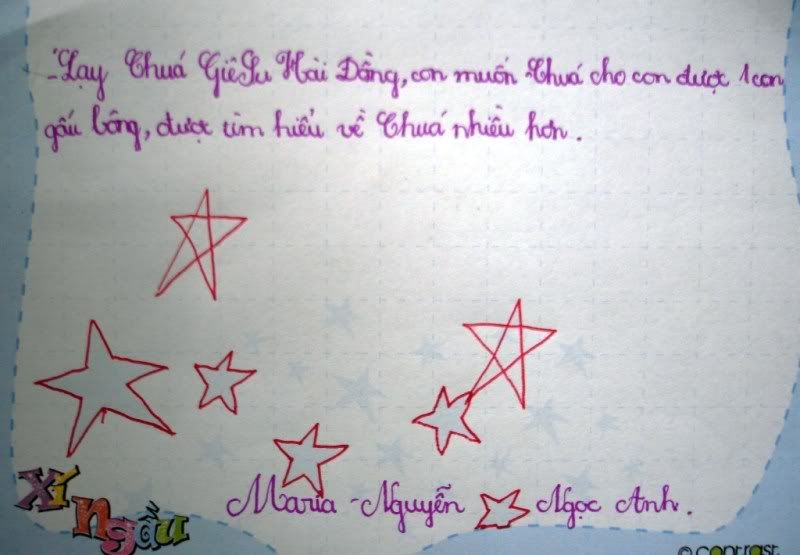 - Lạy Chuá GiêSu Hài Đồng, con muốn Chuá cho con được 1 con
gấu bông, được tìm hiểu về Chuá nhiều hơn.
Maria - Nguyễn Ngọc Anh.
Xí ngầu
© contrast